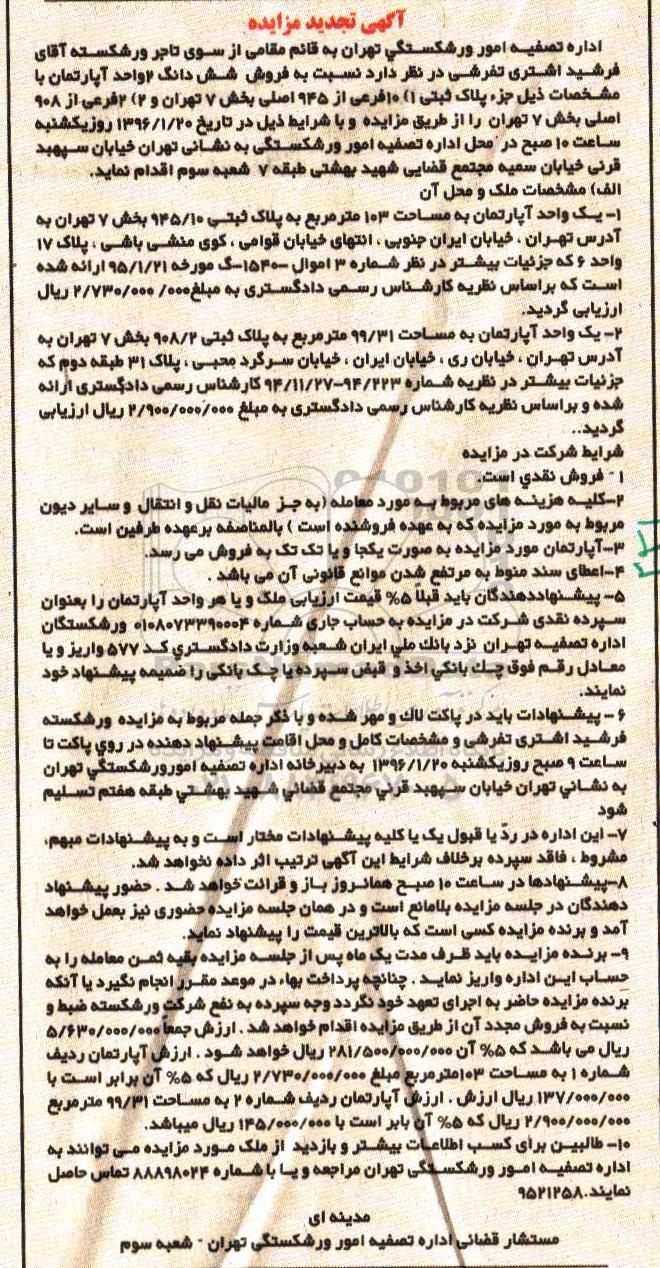 آگهی تجدید مزایده
اداره تصفیه امور ورشکستگي تهران به قائم مقامی از سوی تاجر ورشکسته آقای
فرشید اشتری تفرشی در نظر دارد نسبت به فروش شش دانگ ۲واحد آپارتمان با
مشخصات ذیل جزء پلاک ثبتی ۱) ۱۰فرعی از ۹۴۵ اصلی بخش ۷ تهران و ۲) ۲فرعی از ۹۰۸
اصلی بخش ۷ تهران را از طریق مزایده و با شرایط ذیل در تاریخ ۱۳۹۶/۱/۲۰ روزیکشنبه
ساعت ۱۰ صبح در محل اداره تصفیه امور ورشکستگی به نشانی تهران خیابان سپهبد
قرنی خیابان سمیه مجتمع قضایی شهید بهشتی طبقه ۷ شعبه سوم اقدام نماید.
الف) مشخصات ملک و محل آن
۱- یک واحد آپارتمان به مساحت ۱۰۳ مترمربع به پلاک ثبتی ۹۴۵/۱۰ بخش ۷ تهران به
آدرس تهران ، خیابان ایران جنوبی ، انتهای خیابان قوامی ، کوی منشی باشی ، پلاک ۱۷
واحد ۶ که جزئیات بیشتر در نظر شماره ۳ اموال -۱۵۴۰-گ مورخه ۹۵/۱/۲۱ ارائه شده
است که براساس نظریه کارشناس رسمی دادگستری به مبلغ۲/۷۳۰/۰۰۰ /۰۰۰ ریال
ارزیابی گردید.
۲- یک واحد آپارتمان به مساحت ۹۹/۳۱ مترمربع به پلاک ثبتی ۹۰۸/۲ بخش ۷ تهران به
آدرس تهران ، خیابان ری ، خیابان ایران ، خیابان سرگرد محبی ، پلاک ۳۱ طبقه دوم که
جزئیات بیشتر در نظریه شماره ۹۴/۲۲۳-۹۴/۱۱/۲۷ کارشناس رسمی دادگستری ارائه
شده و براساس نظریه کارشناس رسمی دادگستری به مبلغ ۲/۹۰۰/۰۰۰/۰۰۰ ریال ارزیابی
گردید..
شرایط شرکت در مزایده
۱ - فروش نقدي است.
۲-کلیه هزینه های مربوط به مورد معامله (به جز مالیات نقل و انتقال و سایر دیون
مربوط به مورد مزایده که به عهده فروشنده است ) بالمناصفه برعهده طرفین است.
۳-آپارتمان مورد مزایده به صورت یکجا و یا تک تک به فروش می رسد.
۴-اعطای سند منوط به مرتفع شدن موانع قانونی آن می باشد .
۵- پیشنهاددهندگان باید قبلاً ۵% قیمت ارزیابی ملک و یا هر واحد آپارتمان را بعنوان
سپرده نقدی شرکت در مزایده به حساب جاری شماره ۰۱۰۸۰۷۳۳۹۰۰۰۴ ورشکستگان
اداره تصفیه تهران نزد بانك ملي ایران شعبه وزارت دادگستري کد ۵۷۷ واریز و یا
معادل رقم فوق چك بانکي اخذ و قبض سپرده یا چک بانکی را ضمیمه پیشنهاد خود
نمایند.
۶ - پیشنهادات باید در پاکت لاك و مهر شده و با ذکر جمله مربوط به مزایده ورشکسته
فرشید اشتری تفرشی و مشخصات کامل و محل اقامت پیشنهاد دهنده در روي پاکت تا
ساعت ۹ صبح روزیکشنبه ۱۳۹۶/۱/۲۰ به دبیرخانه اداره تصفیه امورورشکستگي تهران
به نشاني تهران خیابان سپهبد قرني مجتمع قضائي شهید بهشتي طبقه هفتم تسلیم
شود
۷- این اداره در ردّ یا قبول یک یا کلیه پیشنهادات مختار است و به پیشنهادات مبهم،
مشروط ، فاقد سپرده برخلاف شرایط این آگهی ترتیب اثر داده نخواهد شد.
۸-پیشنهادها در ساعت ۱۰ صبح همانروز باز و قرائت خواهد شد . حضور پیشنهاد
دهندگان در جلسه مزایده بلامانع است و در همان جلسه مزایده حضوری نیز بعمل خواهد
آمد و برنده مزایده کسی است که بالاترین قیمت را پیشنهاد نماید.
۹- برنده مزایده باید ظرف مدت یک ماه پس از جلسه مزایده بقیه ثمن معامله را به
حساب این اداره واریز نماید . چنانچه پرداخت بهاء در موعد مقرر انجام نگیرد یا آنکه
برنده مزایده حاضر به اجرای تعهد خود نگردد وجه سپرده به نفع شرکت ورشکسته ضبط و
نسبت به فروش مجدد آن از طریق مزایده اقدام خواهد شد . ارزش جمعاً ۵/۶۳۰/۰۰۰/۰۰۰
ریال می باشد که ۵% آن ۲۸۱/۵۰۰/۰۰۰/۰۰۰ ریال خواهد شود . ارزش آپارتمان ردیف
شماره ۱ به مساحت ۱۰۳مترمربع مبلغ ۲/۷۳۰/۰۰۰/۰۰۰ ریال که ۵% آن برابر است با
۱۳۷/۰۰۰/۰۰۰ ریال ارزش . ارزش آپارتمان ردیف شماره ۲ به مساحت ۹۹/۳۱ مترمربع
۲/۹۰۰/۰۰۰/۰۰۰ ریال که ۵% آن بابر است با ۱۴۵/۰۰۰/۰۰۰ ریال میباشد.
۱۰- طالبین برای کسب اطلاعات بیشتر و بازدید از ملک مورد مزایده می توانند به
اداره تصفیه امور ورشکستگی تهران مراجعه و یا با شماره ۸۸۸۹۸۰۲۴ تماس حاصل
نمایند.۹۵۲۱۲۵۸
مدینه ای
مستشار قضائی اداره تصفیه امور ورشکستگی تهران - شعبه سوم